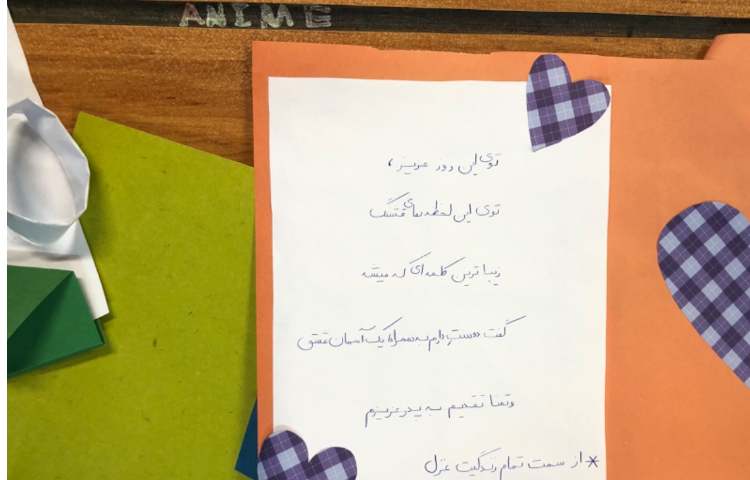 ANIME
توی این روز عزیز،
توی این لحظه های قشنگ
زیبا ترین کلمه ای که میشه
گفت دوستت دارم به همراه یک آسمان عشق
وتنها تقدیم به پدر عزیزم
* از سمت تمام زندگیت غزل